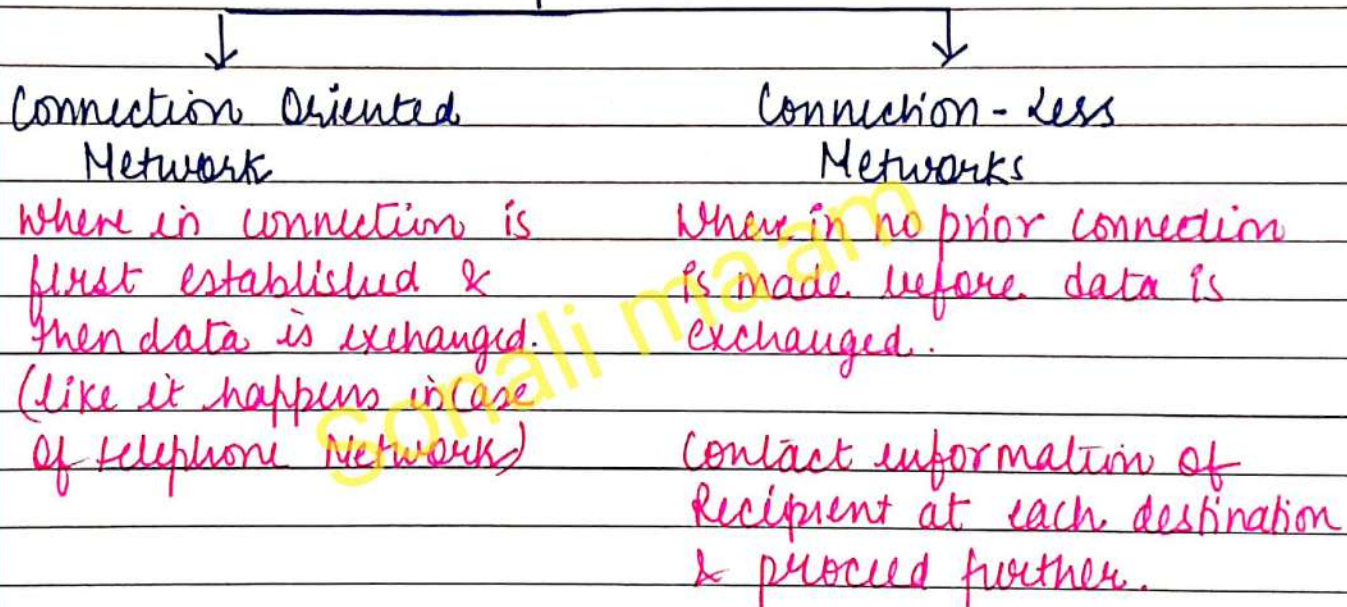 Connection Oriented
Network
where in connection is
first established &
then data is exchanged.
(like it happens incase
of telephone Network)
Connection-Less
Networks
Where in no prior connection
is made before data is
exchanged.
Contact information of
Recipient at each destination
& proceed further.
Sonali maam